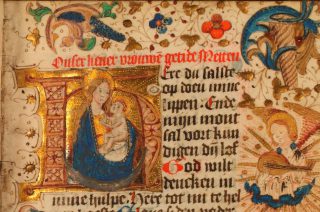 Onser liener vrouwe getide Metten
Ere du salste
op doen mine
lippen. Ende
mijn mont
sal vort kun
digen dij lof
God wilt
dencken in
mine hulpe. Here tot mi te hel